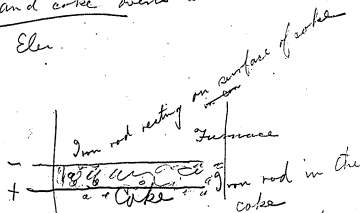 and coke ovens
Elec
Iron rod resting on surface of coke
Furnace
-
+
Coke
Iron rod in the
coke